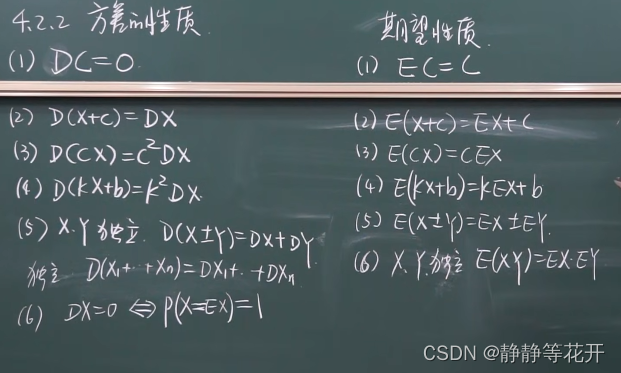 4.2.2 方差的性质
(1) DC=0
(2) D(X+c)=DX
(3) D(CX)=C²DX
(4) D(kX+b)=k²DX
(5) X.Y独立. D(X±Y)=DX+DY
独立 D(X₁+…+Xn)=DX₁+..+DXn
(6) DX=0 ⇔ P(X=EX)=1
期望性质.
(1) EC=C
(2) E(X+c)=EX+C
(3) E(CX)=CEX
(4) E(kX+b)=kEX+b
(5) E(X±Y)=EX±EY.
(6) X.Y.独立 E(XY)=EX·EY
CSDN @静静等花开